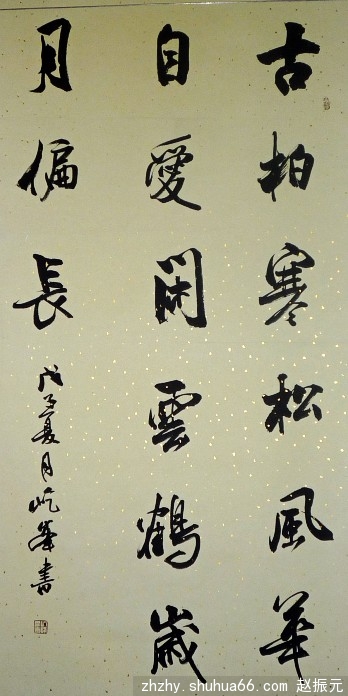 古柏寒松風華
自愛閑雲鶴歲
月偏長
戊子夏月屹峯書
zhzhy.shuhua66.com 赵振元